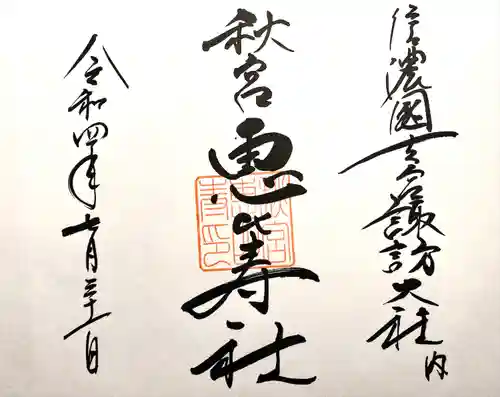 信濃國一之宮諏訪大社内
秋宮恵比寿社
令和四年七月二十一日